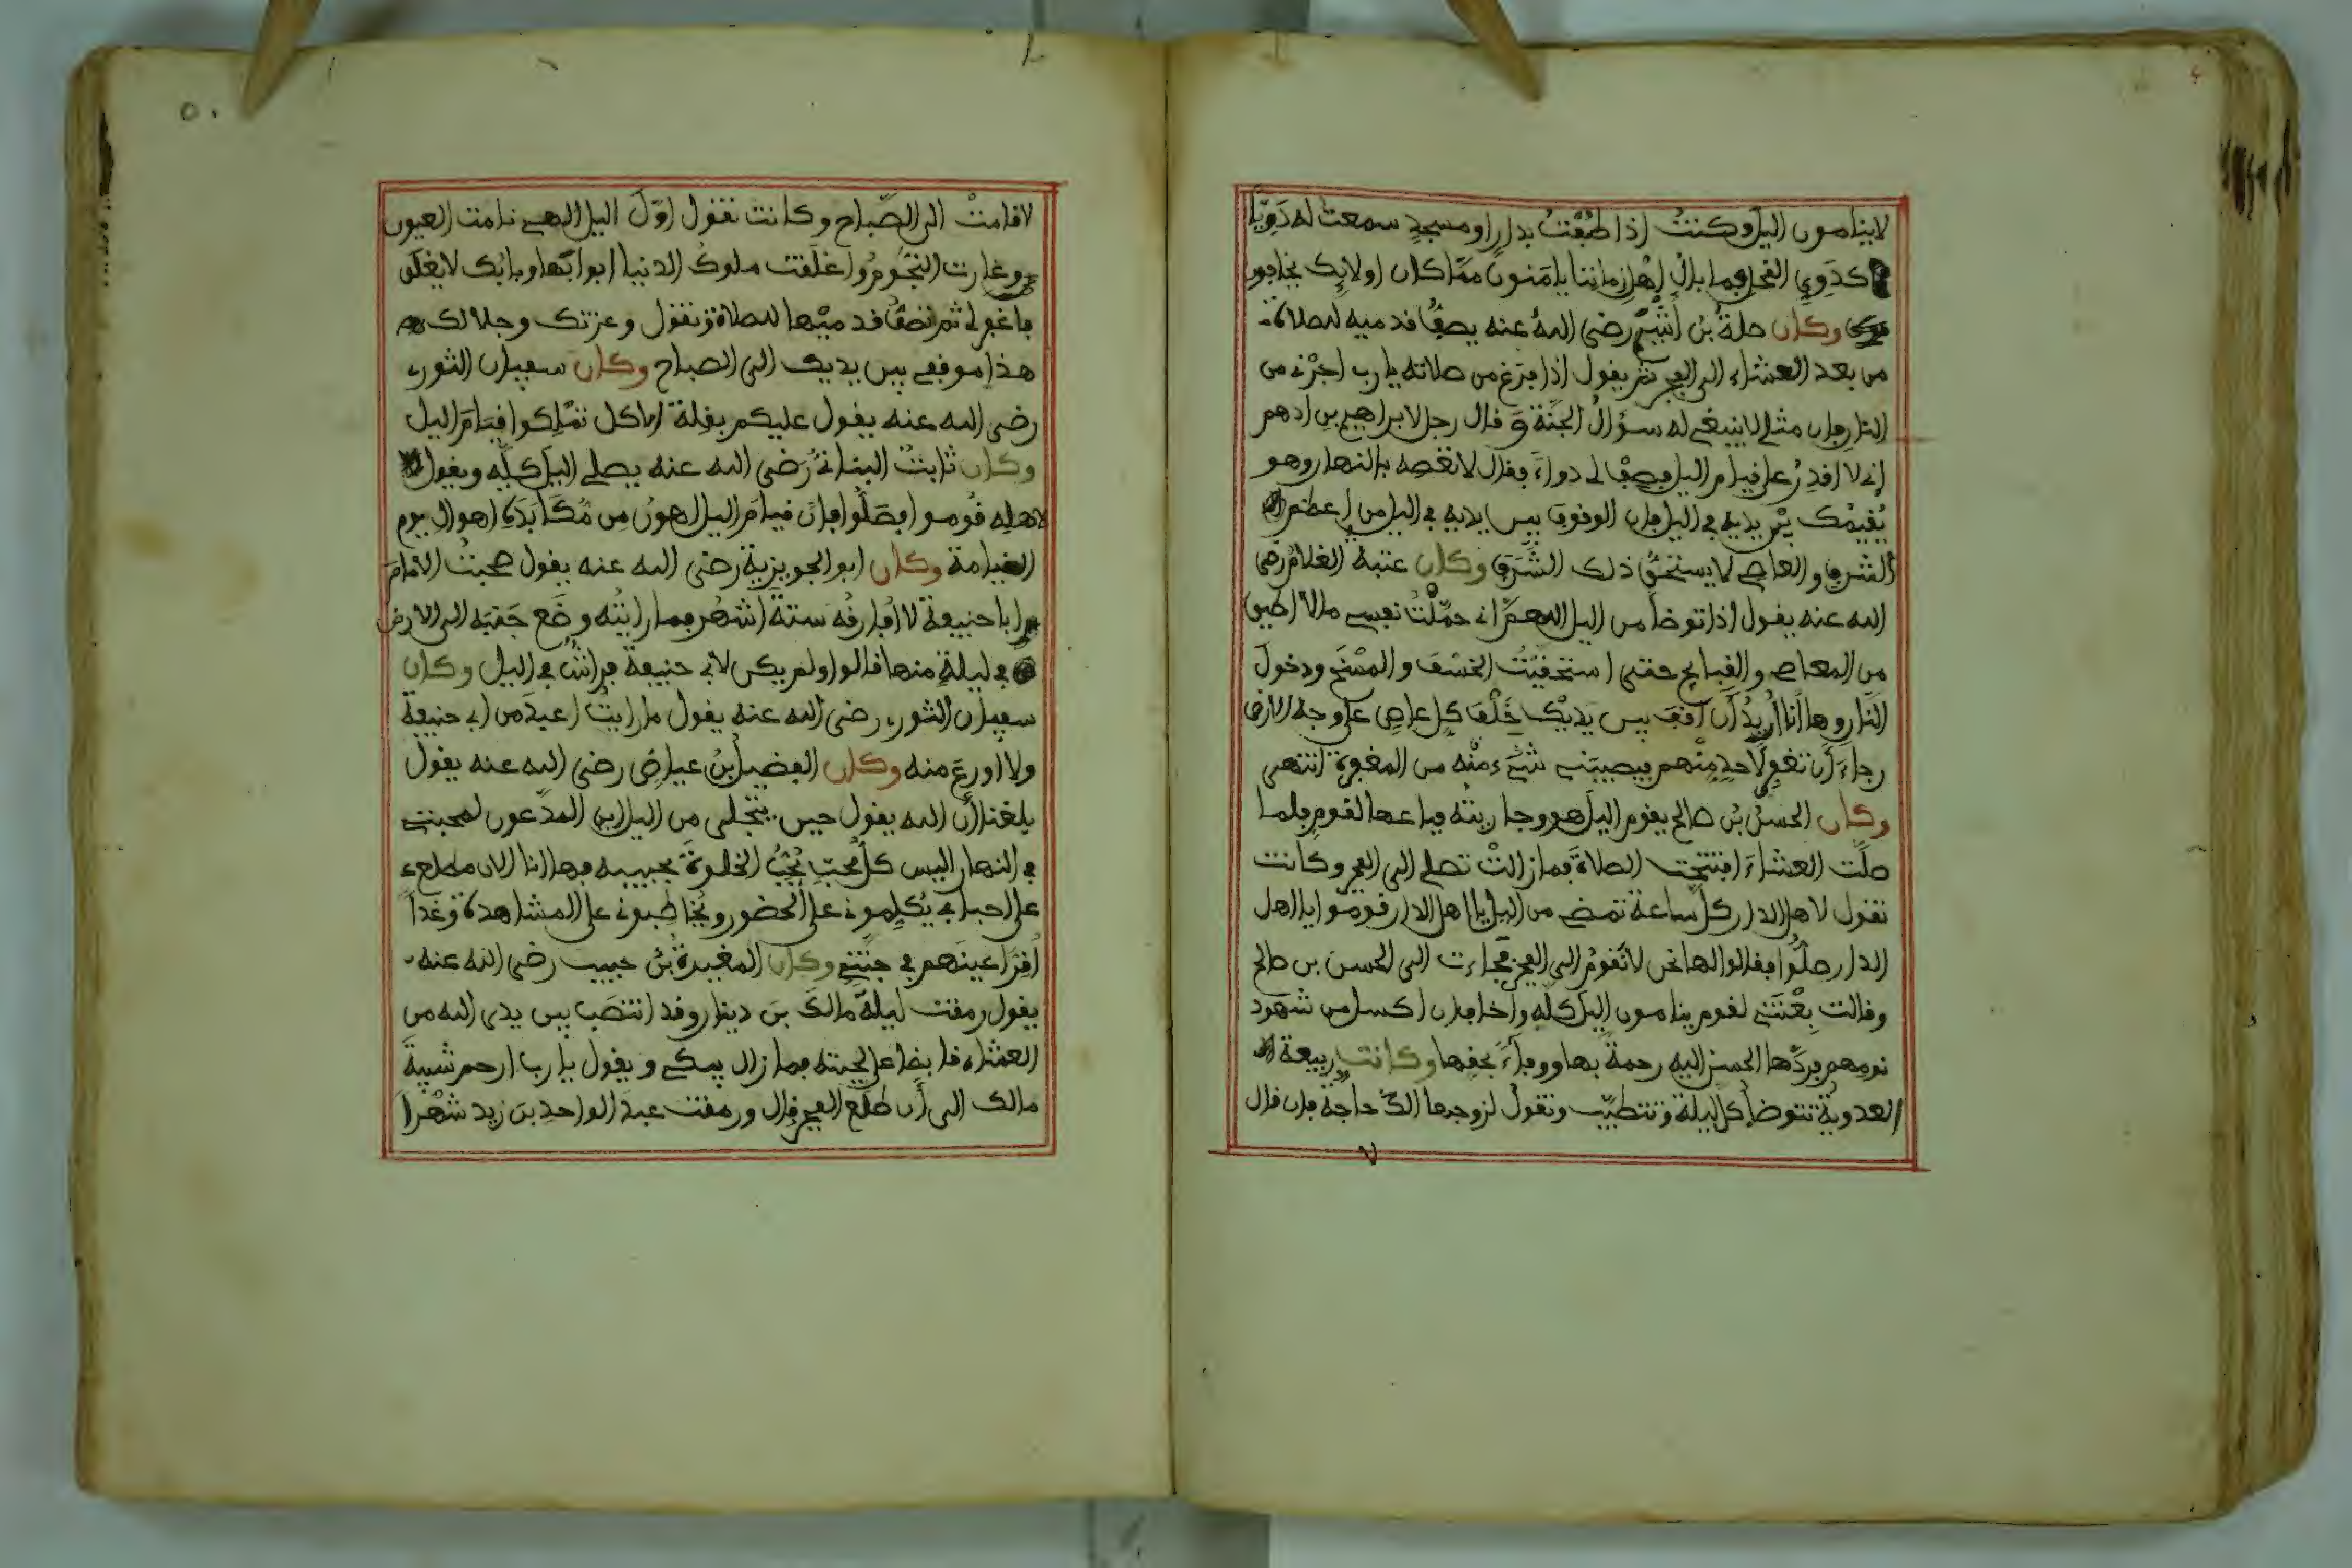 لا ينامون اليل وكنتُ إذا طُفْتُ بدارٍ او مسجدٍ سمعت له دَوِيًّا
كدَوِيِّ النحل فما بال أهل زماننا يامَنونَ مما كان اولايك يخافون
وكان صلةُ بنُ أَشْيَمَ رضي اللهُ عنه يصفُّ قدميه للصلاة
من بعد العشاء الى الفجر ثم يقول إذا فرَغ من صلاته يا رب اجرْني من
النار فإن مثلي لا ينبغي له سؤالُ الجنّة وقال رجل لابراهيم بن ادهم
إني لا اقدِرُ على قيام اليل فصِفْ لي دواءً فقال لا تعصِه بالنهار وهو
يُقيمُك بيْن يديه في اليل فإن الوقوف بين يديه في اليل من أعظم
الشرف والعاصي لا يستحقُّ ذلك الشَّرَف وكان عتبة الغلامُ رضي
الله عنه يقول إذا توضأ من اليل اللهمَّ إني حمّلْتُ نفسي ما لا أطيق
من المعاصي والقبايح حتى استحقيْتُ الخسْفَ والمسْخَ ودخولَ
النار وها أنا أُريدُ أن أقِفَ بين يديْك خَلْفَ كلِ عاصٍ على وجه الارض
رجاءَ أن تغفِر لأحدٍ مِنْهم فيصيبَني شيْءٌ منْه من المغفرة انتهى
وكان الحسنُ بْنُ صالح يقوم اليلَ هو وجاريتُه فباعها لقومٍ فلما
صلّت العشاءَ افتتحتِ الصلاةَ فما زالتْ تصلي الى الفجر وكانت
تقول لاهل الدار كلَّ ساعة تمضي من اليل يا اهل الدار قوموا يا اهل
الدار صلُّوا فقالوا لها نحن لا نقومُ الى الفجر فجاءت الى الحسن بن صالح
وقالت بعْتَني لقوم ينامون اليلَ كلَّه واخاف ان اكسل من شهود
نومهم فردَّها الحسن اليه رحمةً بها ووفاءً بحقِها وكانت ربيعة
العدويةُ تتوضأُ كل ليلة وتتطيّب وتقولُ لزوجها الكَ حاجة فإن قال
لا قامتْ الى الصّباح وكانت تقول اوّلَ اليل الهي نامت العيون
وغارت النجُومُ واغلَقت ملوكُ الدنيا ابوابَها وبابُك لا يغلَق
فاغفر لي ثم تصفُّ قدميْها للصلاة وتقول وعزتك وجلالك
هذا موقفي بين يديك الى الصباح وكان سفيان الثوري
رضي الله عنه يقول عليكم بقلة الاكل تمْلِكوا قيامَ اليل
وكان ثابتُ البنانيُّ رَضي الله عنه يصلي اليلَ كلّه ويقول
لاهله قُوموا فصَلُّوا فإنّ قيامَ اليل اهونُ مِن مُكَابَدَةِ اهوال يوم
القيامة وكان ابو الجويرية رضي الله عنه يقول صحبتُ الامامَ
ابا حنيفة لا أفارقُه ستةَ أشهُر فما رايتُه وضَع جَنبَه الى الارض
في ليلةٍ منها قالوا ولم يكن لأبي حنيفة فراشٌ في اليل وكان
سفيان الثوري رضي الله عنه يقول ما رايتُ أعبدَ من أبي حنيفة
ولا اورعَ منه وكان الفضيلُ بنُ عياض رضي الله عنه يقول
بلغنا أن الله يقول حين يتجلى من اليل اين المدّعون لمحبتي
في النهار اليس كلُّ مُحبٍّ يُحِبُّ الخلوةَ بحبيبه فها انا الان مطلع
على احبابي يُكلِمونى على الحضور ويُخاطِبوني على المشاهدة وغداً
أُقِرُّ اعينَهم في جنّتي وكان المغيرةُ بنُ حبيب رضي الله عنه
يقول رمقت ليلةً مالكَ بنَ دينار وقد انتصَب بين يدي الله من
العشاء قابضا على لحيته فما زال يبكي ويقول يا رب ارحم شيبةَ
مالك الى أن طلَع الفجر قال ورمقت عبد الواحد بنَ زيد شهْراً